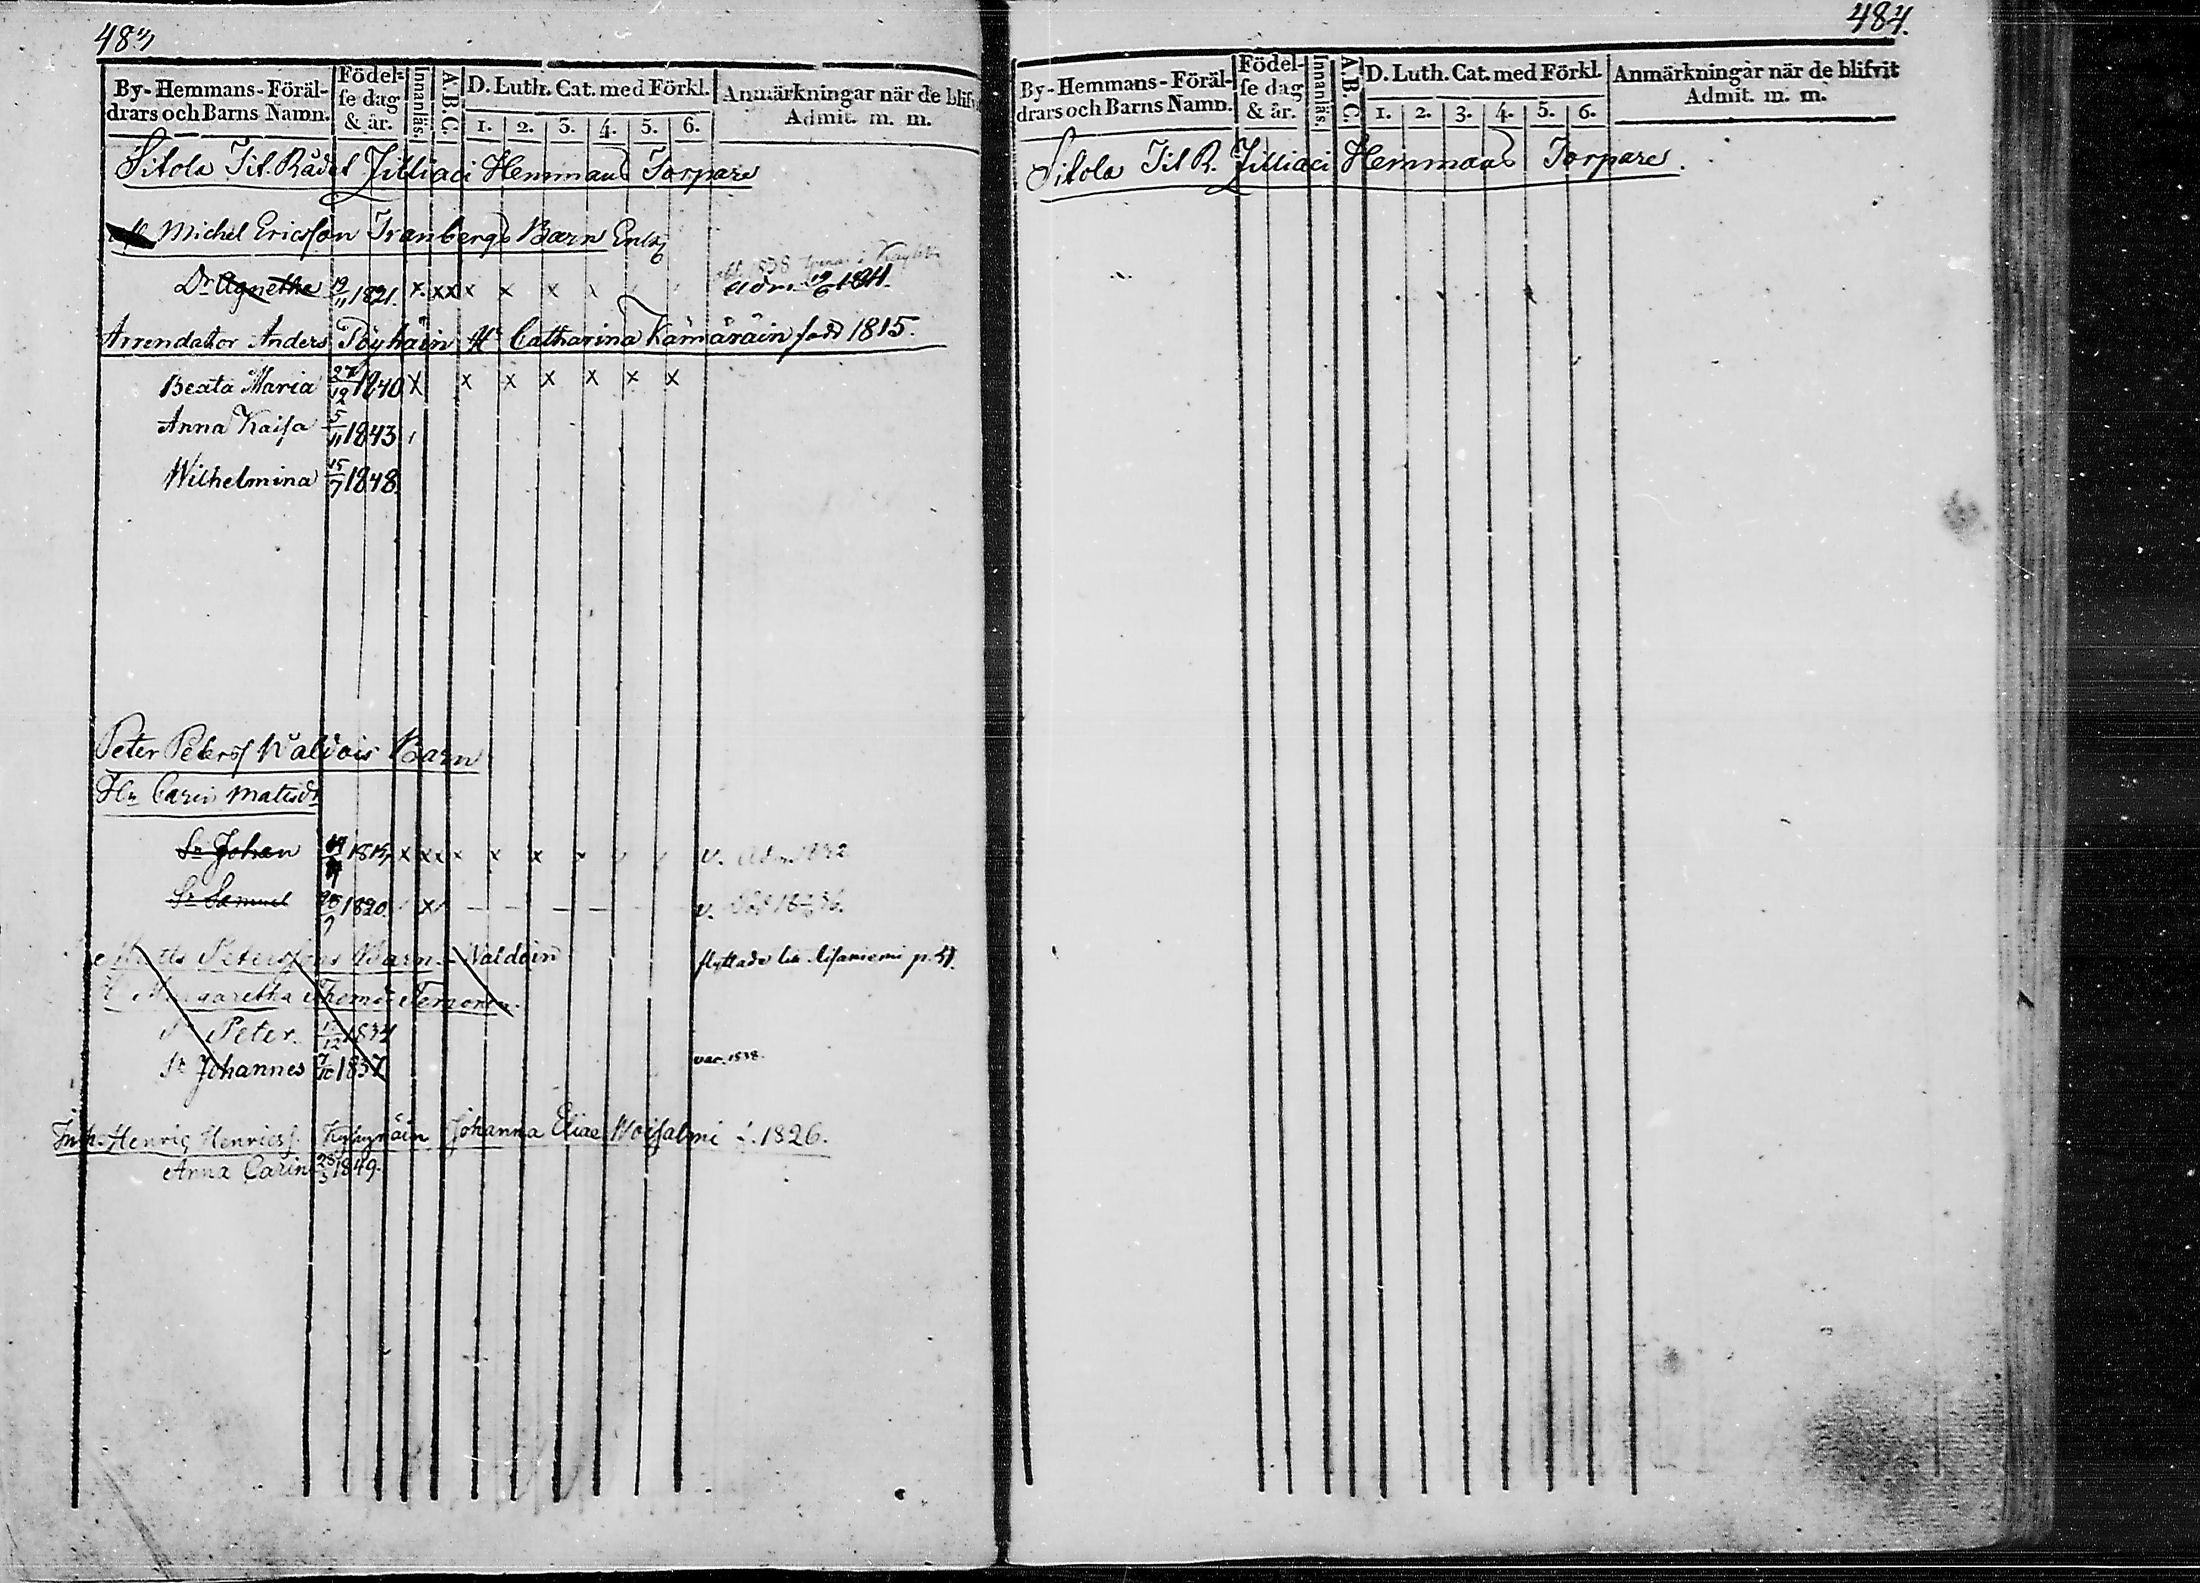 483
By-Hemmans-Föräl-
drars och Barns Namn.
Födel-
se dag
& år.
Innanläs.
A.B.C.
D. Luth. Cat. med Förkl.
1. 2. 3. 4. 5. 6.
Anmärkningar när de blifv
Admit. m. m.
Sitola Tit. Rådet Zilliaci Hemmans Torpare
Michel Ericsson Tranbergs Barn Enka
Dr Agnetha 19/11 1821. x xx x x x x
1838
adm. 19/6 1841.
Arrendator Anders Pöyhäin Hu Catharina Kämäräin född 1815.
Beata Maria 27/12 1840 x x x x x x x
Anna Kaisa 5/11 1843
Wilhelmina 15/7 1848.
Peter Peterss Waldois Barn
Hu Carin Matsdr
Sn Johan 1815 x xx x x x x v. adm 1832
Sn Samuel 1820 x — — — — — v.
Matts Peterssons Barn – Waldoin flyttade till p. 51.
Margaretha Thomæ
Sn Peter. 12 1834
Sn Johannes 7/10 1837 vac. 1838.
Inh. Henric Henricss. Kyhyräin Johanna Eliæ Woisalmi f. 1826.
Anna Carin 28/3 1849.
484.
By-Hemmans-Föräl-
drars och Barns Namn.
Födel-
se dag
& år.
Innanläs.
A.B.C.
D. Luth. Cat. med Förkl.
1. 2. 3. 4. 5. 6.
Anmärkningar när de blifvit
Admit. m. m.
Sitola Tit R. Zilliaci Hemmans Torpare.